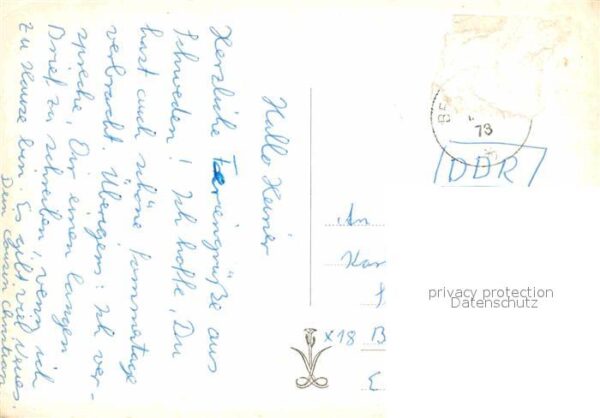 Hallo Heiner
Herzliche Feriengrüße aus
Schweden! Ich hoffe, Du
hast auch schöne Sommertage
verbracht. Übrigens: Ich ver-
spreche, Dir einen langen
Brief zu schreiben, wenn ich
zu Hause bin. Es gibt viel Neues.
Dein Cousin
78
DDR
An
x18 B
privacy protection
Datenschutz